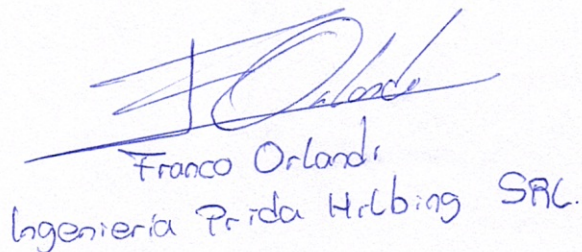 FOrlandi
Franco Orlandi
Ingeniería Prida Hilbing SRL.